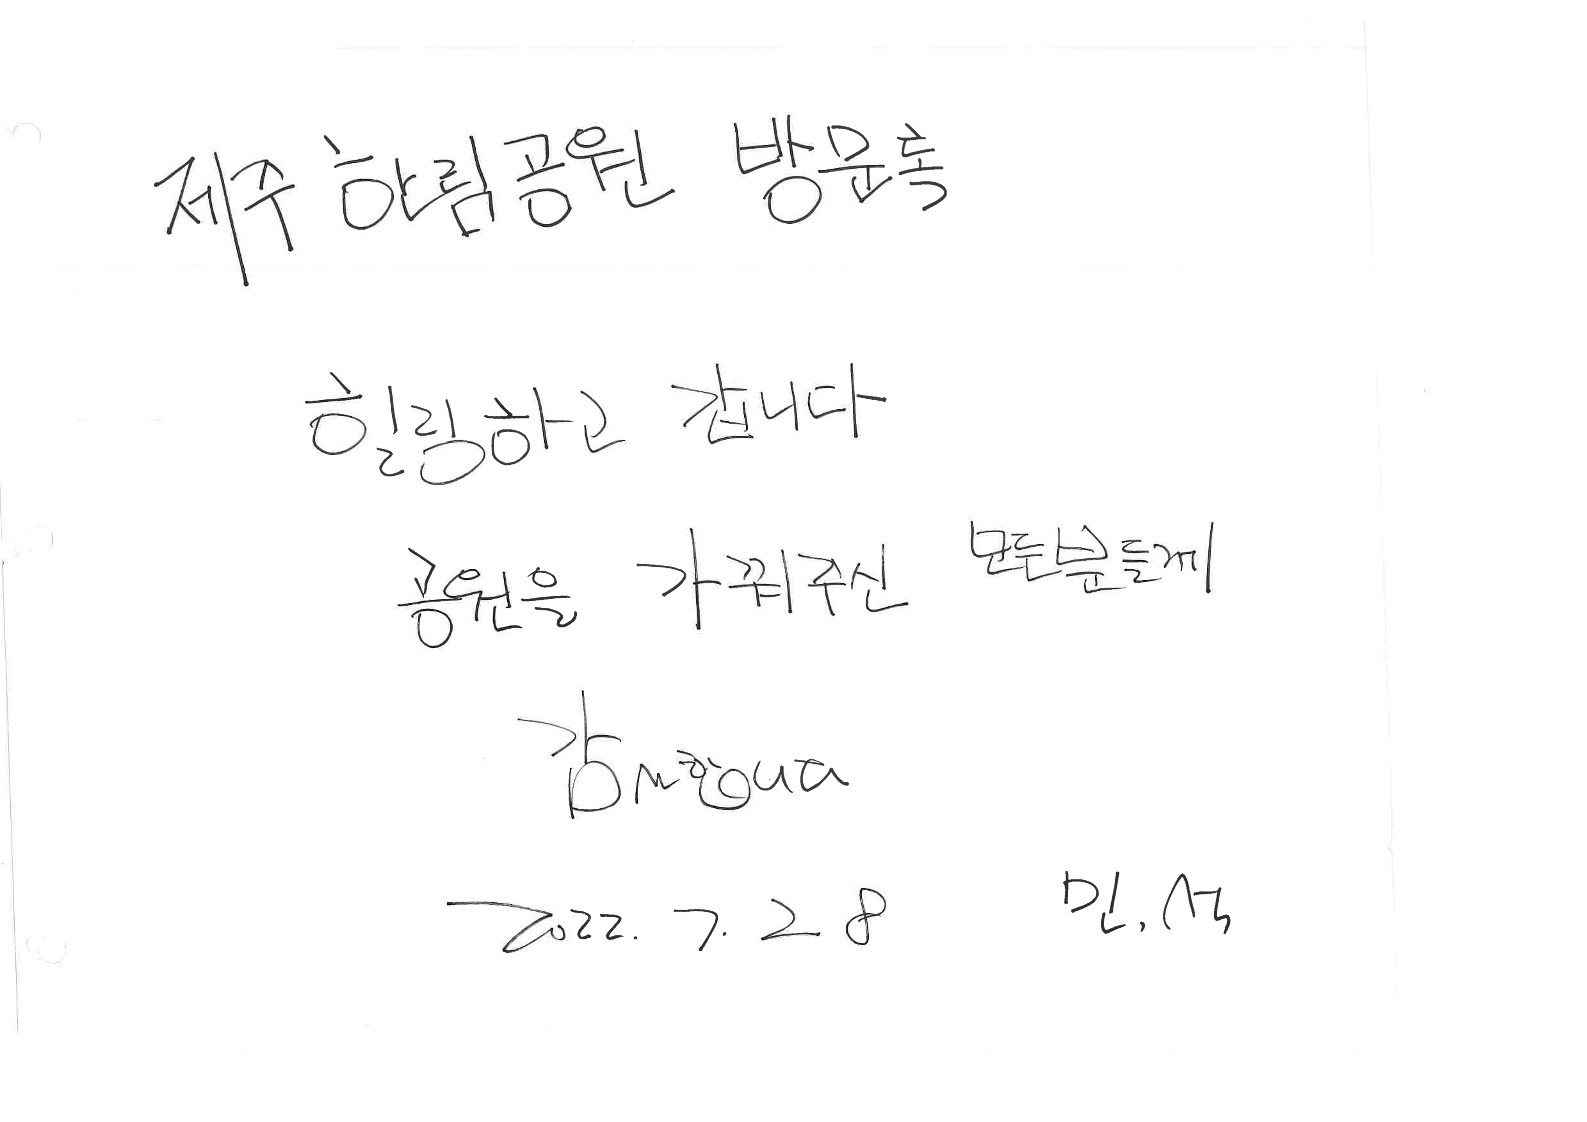 제주 한림공원 방문록
힐링하고 갑니다
공원을 가꿔주신 모든분들께
감사합니다
2022. 7. 28 민.석